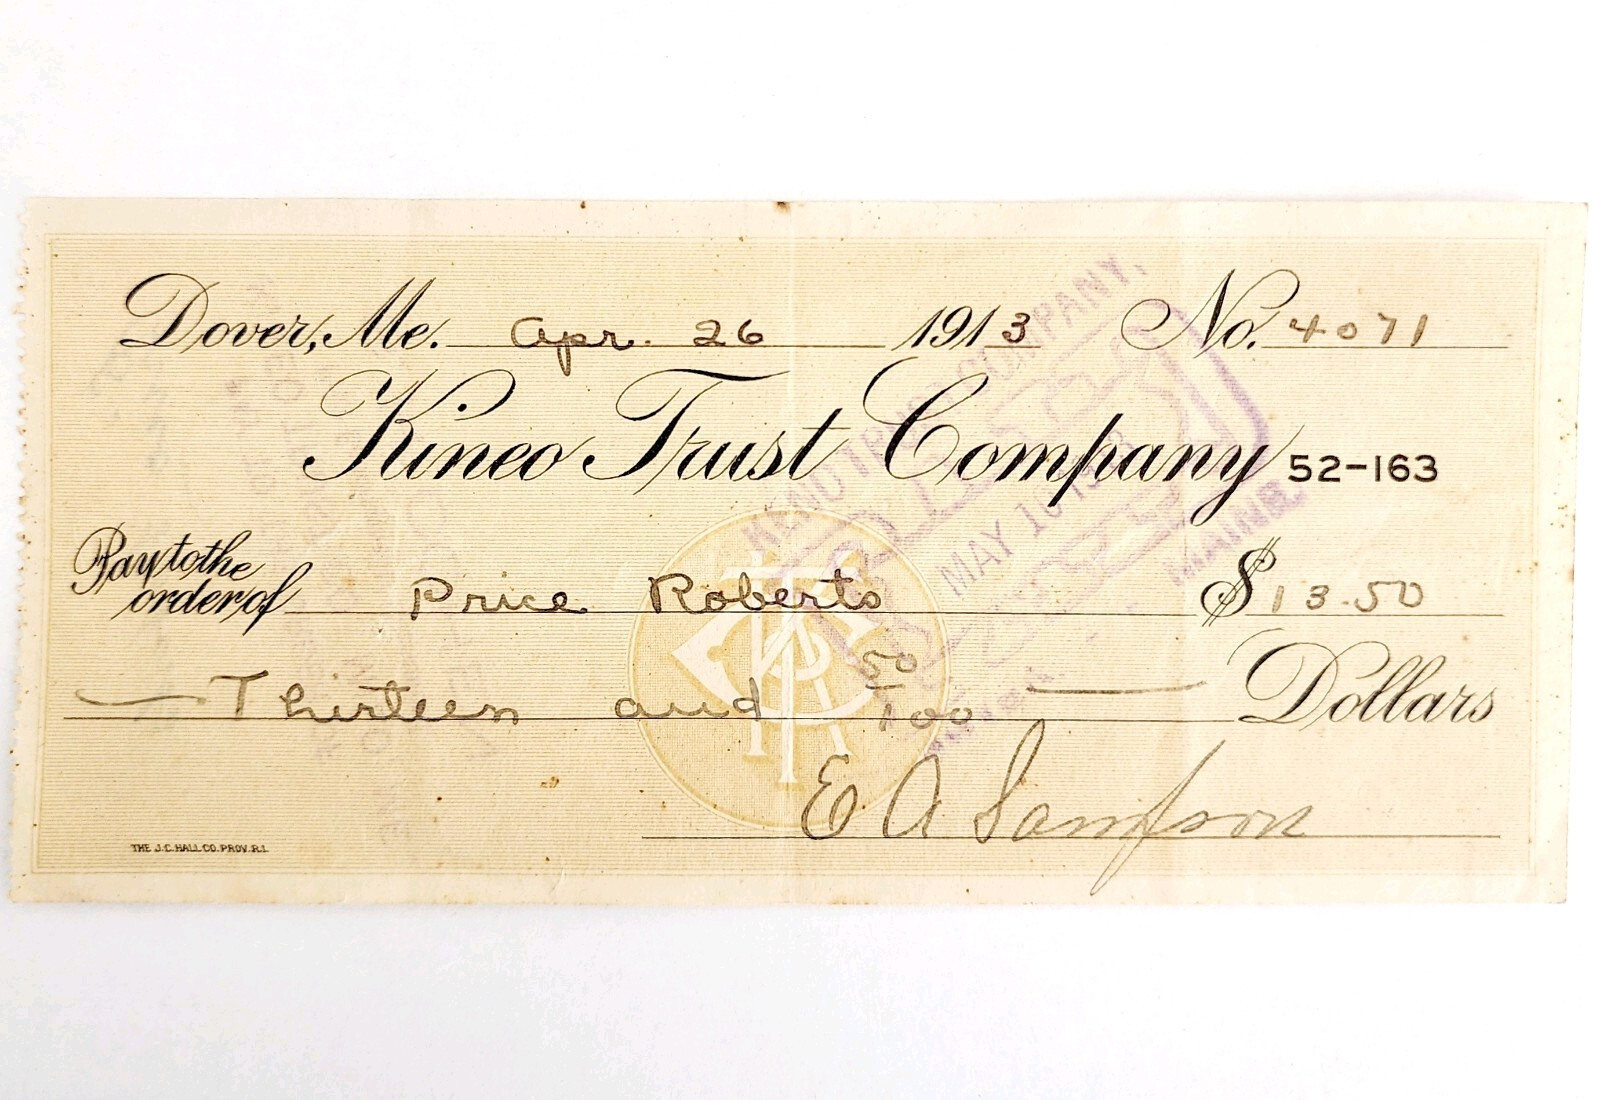 Dover, Me. Apr. 26 1913 No. 4071
Kineo Trust Company 52-163
Pay to the order of Price Roberts $13.50
Thirteen and 50/100 Dollars
E A Sampson
THE J.C. HALL CO. PROV. R.I.
TRUST COMPANY,
PAID
MAY 10 1913
MAINE.
KTC